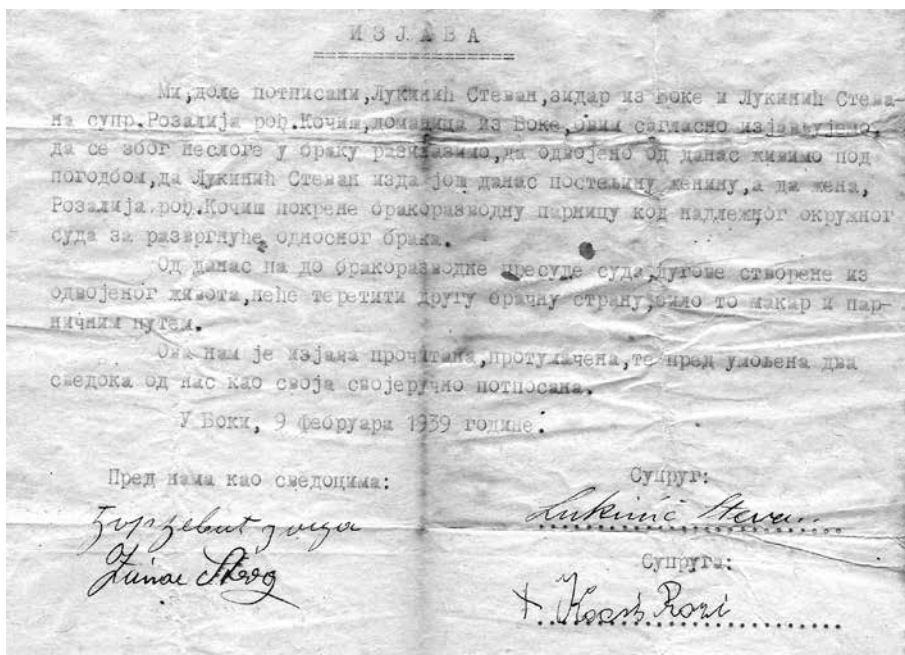 ИЗЈАВА
Ми,доле потписани,Лукинић Стеван,зидар из Боке и Лукинић Стева-
на супр.Розалија рођ.Кочиш,домаћица из Боке,овим сагласно изјављујемо,
да се због неслоге у браку разилазимо,да одвојено од данас живимо под
погодбом,да Лукинић Стеван изда још данас постељину женину,а да жена,
Розалија рођ.Кочиш покрене бракоразводну парницу код надлежног окружног
суда за развргнуће односног брака.
Од данас па до бракоразводне пресуде суда,дугове створене из
одвојеног живота,неће теретити другу брачну страну,било то макар и пар-
ничним путем.
Ова нам је изјава прочитана,протумачена,те пред умољена два
сведока од нас као своја својеручно потпосана.
У Боки, 9 фебруара 1939 године.
Пред нама као сведоцима:
Супруг:
Lukinić Stevan
Супруга:
+ Kocsis Rozi